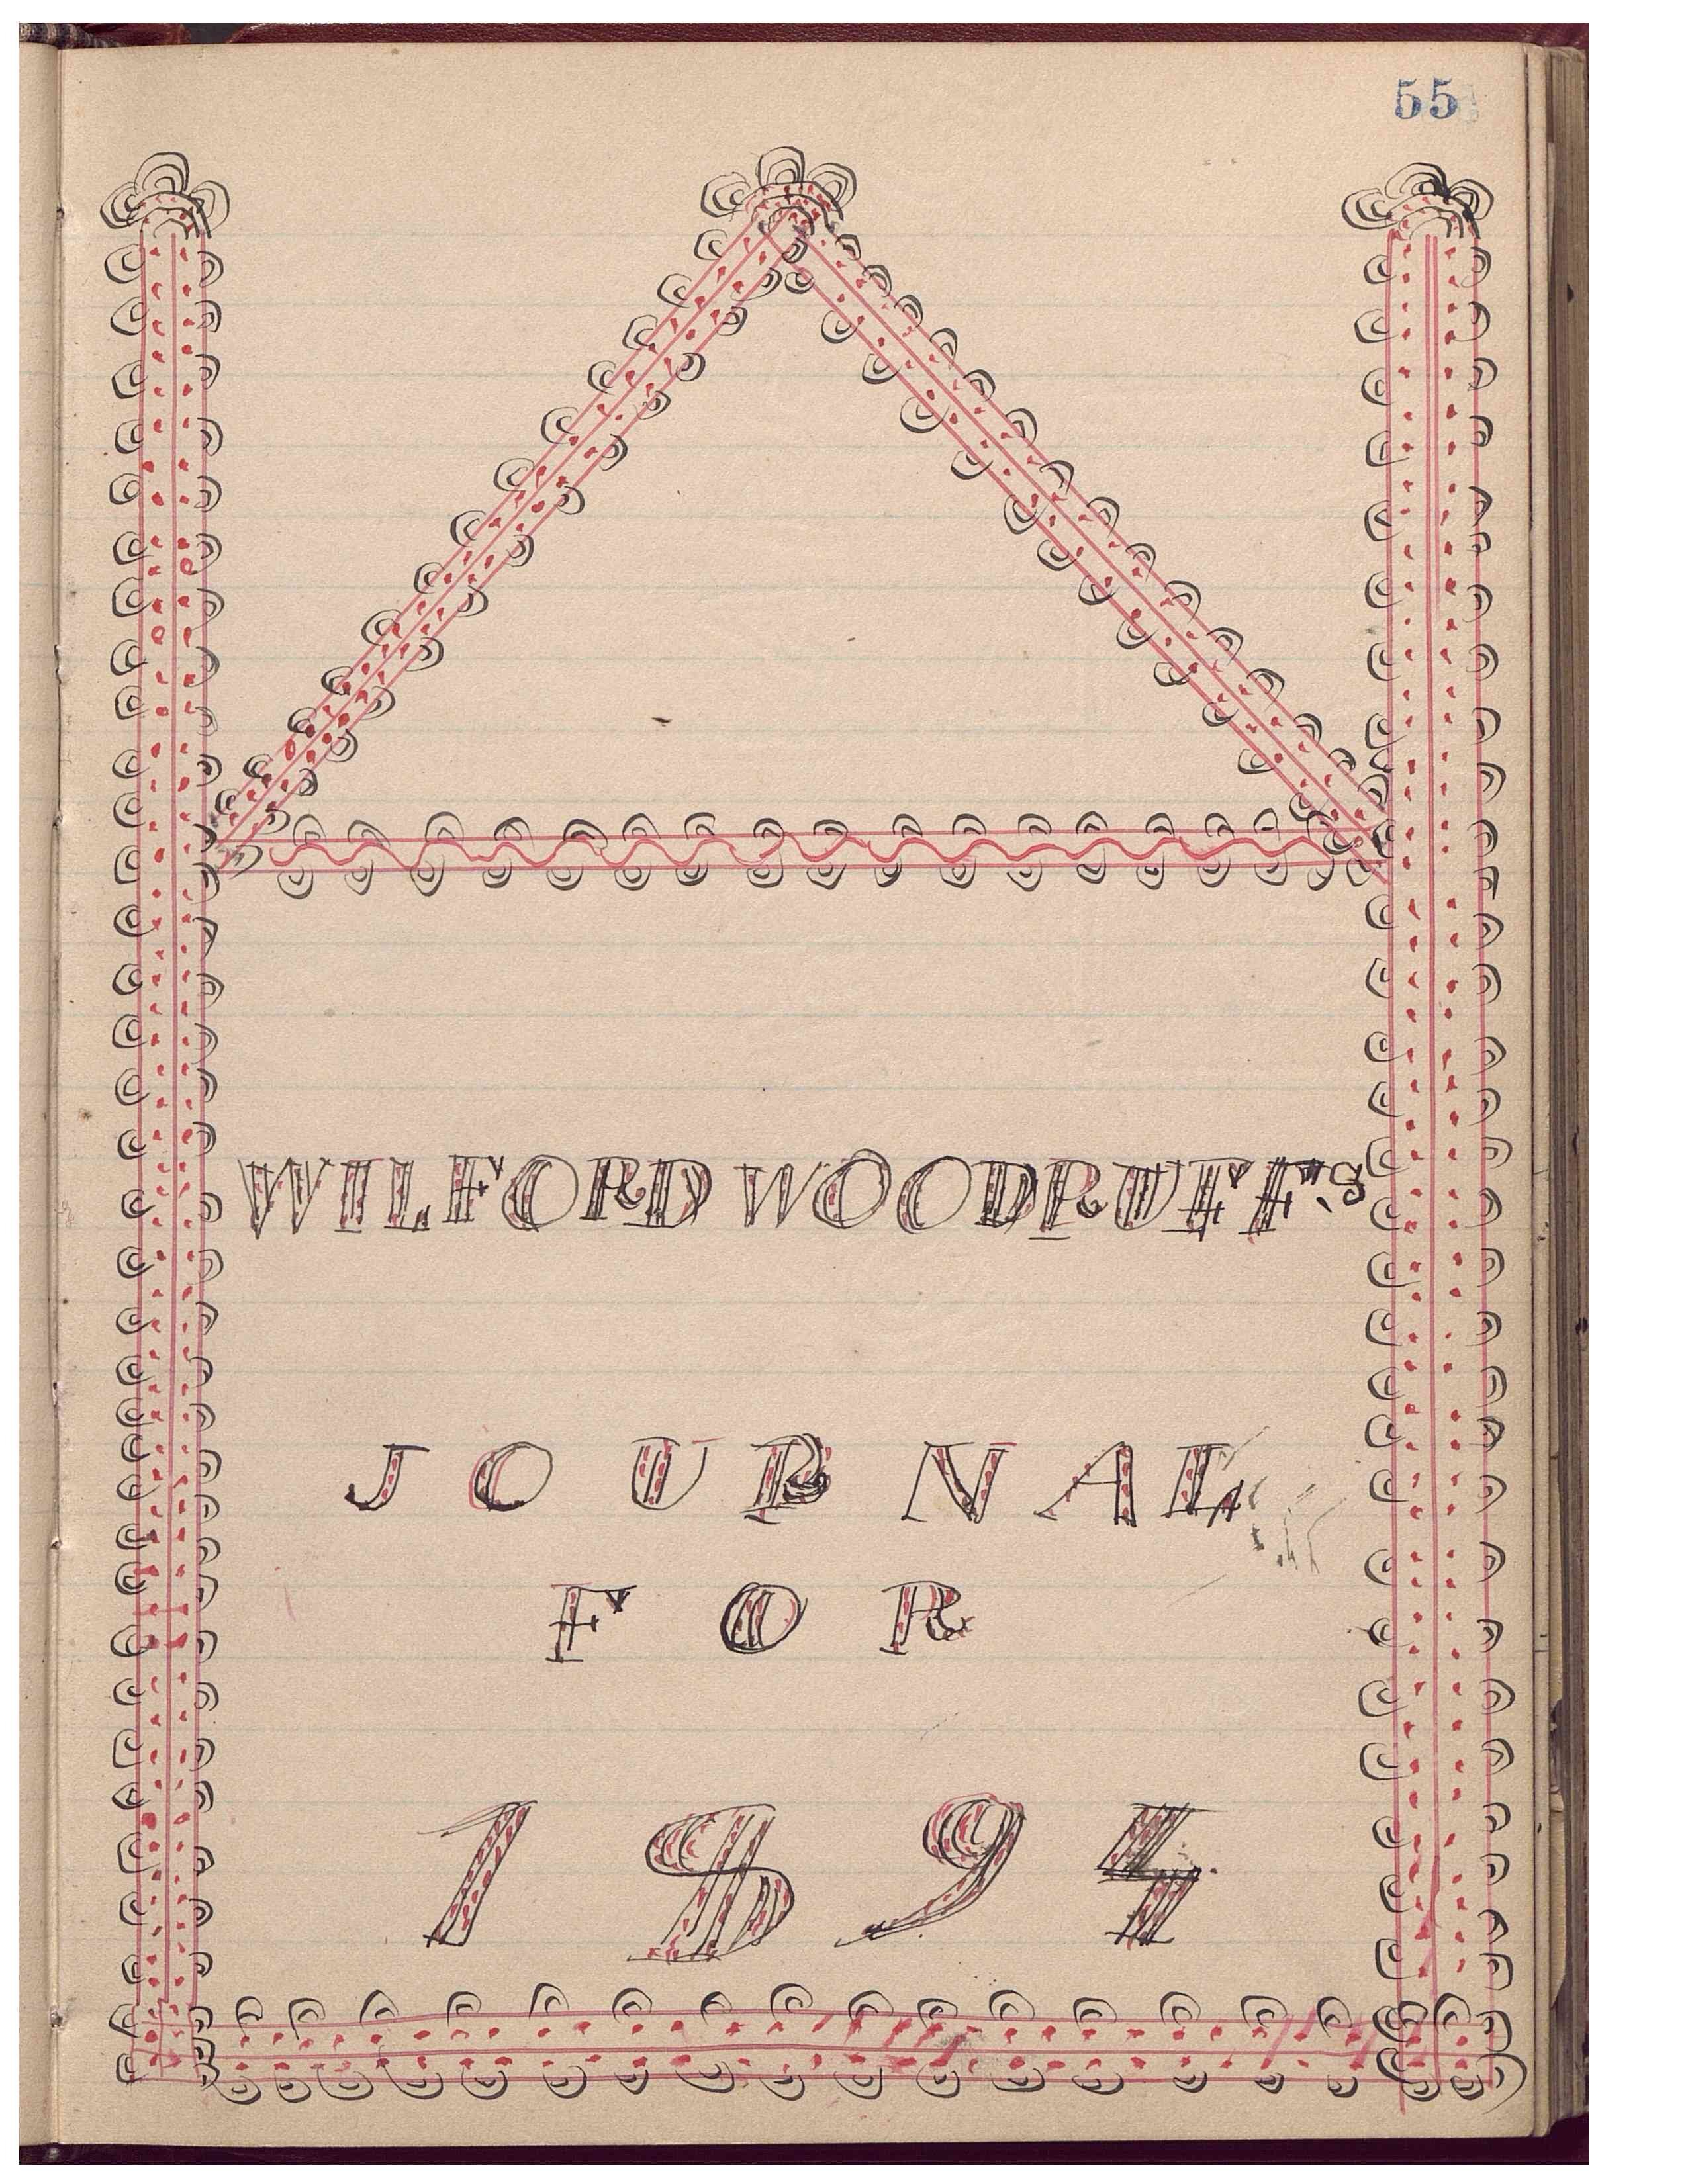 55
WILFORD WOODRUFF'S
JOURNAL
FOR
1894